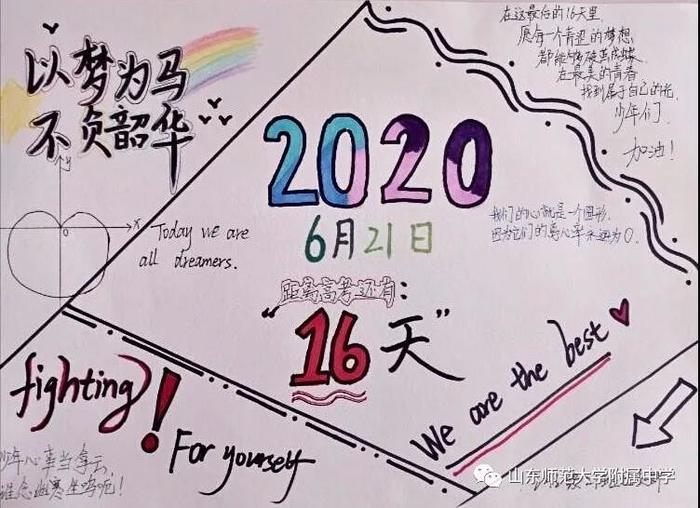 以梦为马
不负韶华
y
x
0
Today we are
all dreamers.
2020
6月21日
距离高考还有：
“16天”
在这最后的16天里
愿每一个青涩的梦想
都能够破茧成蝶
在最美的青春
找到属于自己的光
少年们
加油！
我们的心就是一个圆形，
因为它们的离心率永远为0.
We are the best
fighting!
For yourself
少年心事当拿云，
谁念幽寒坐呜呃！
山东师范大学附属中学